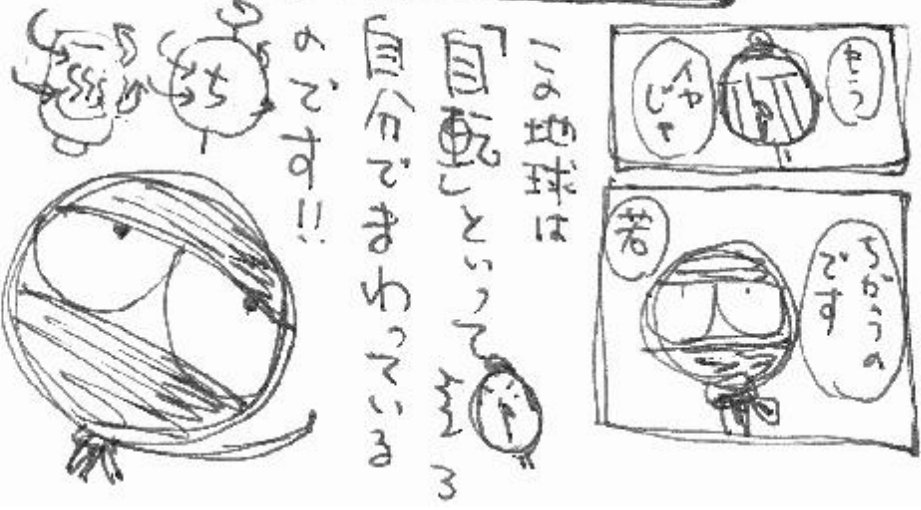 もう
イヤ
じゃ
ちがうの
です
若
この地球は
「自転」といって
自分でまわっている
のです!!
ち